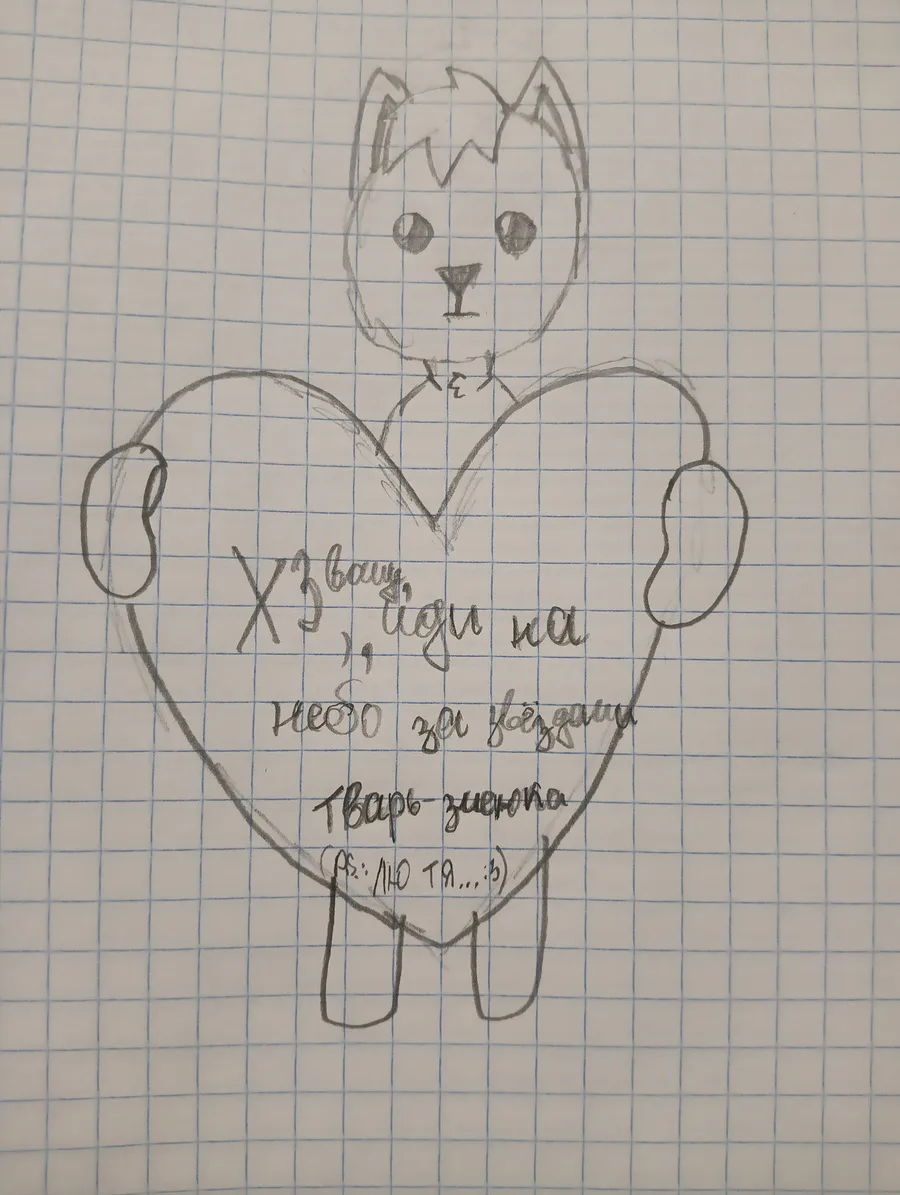 ХЗ
), иди на
небо за звёздами
тварь-змеюка
(PS: ЛЮ ТЯ...:3)